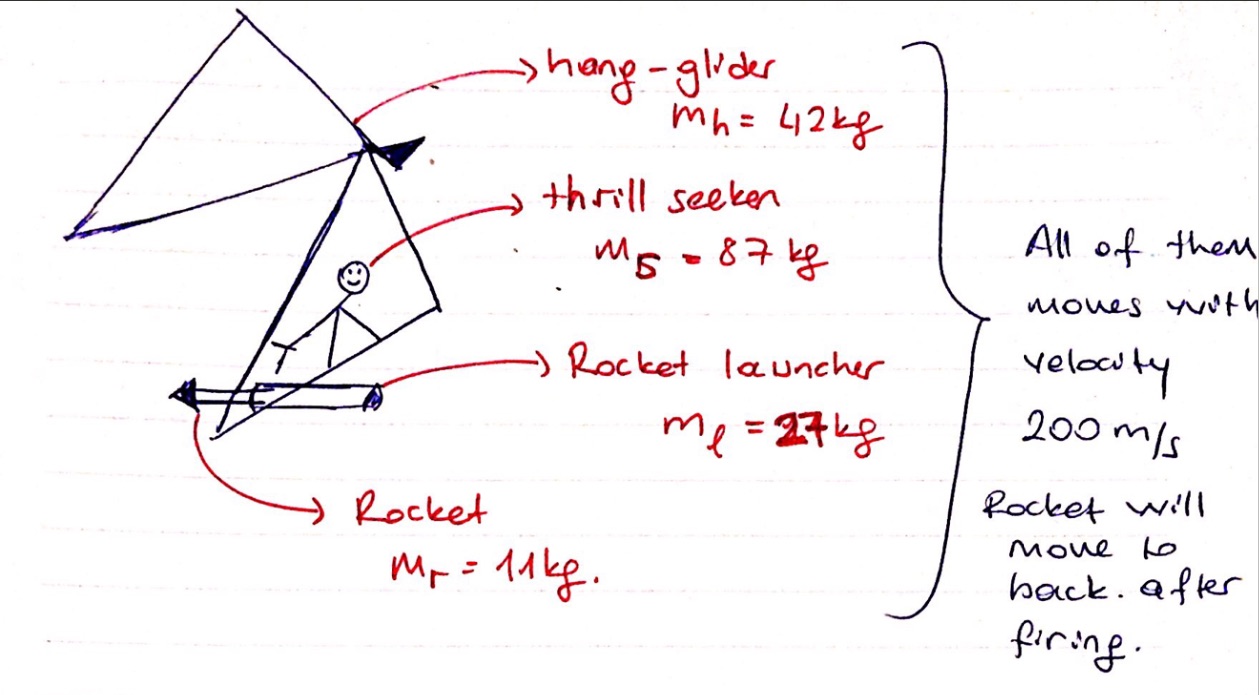 hang-glider
mh = 42kg
thrill seeker
ms = 87 kg
Rocket launcher
ml = 27kg
Rocket
mr = 11kg.
All of them
moves with
velocity
200 m/s
Rocket will
move to
back. after
firing.